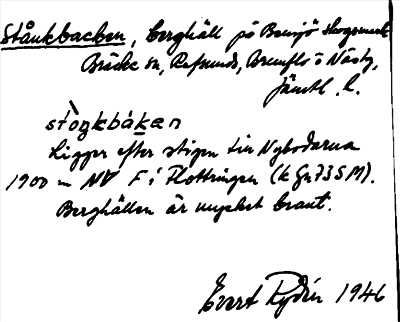 Stånkbacken, berghäll på Bensjö skogsmark
Bräcke sn, Refsunds, Brunflo o Näsby,
Jämtl. l.
stòŋkbákan
Ligger efter stigen till Nybodarna
1900 m NV F i Flottringen (k Gn 73 S M).
Berghällen är mycket brant.
Evert Rydin 1946